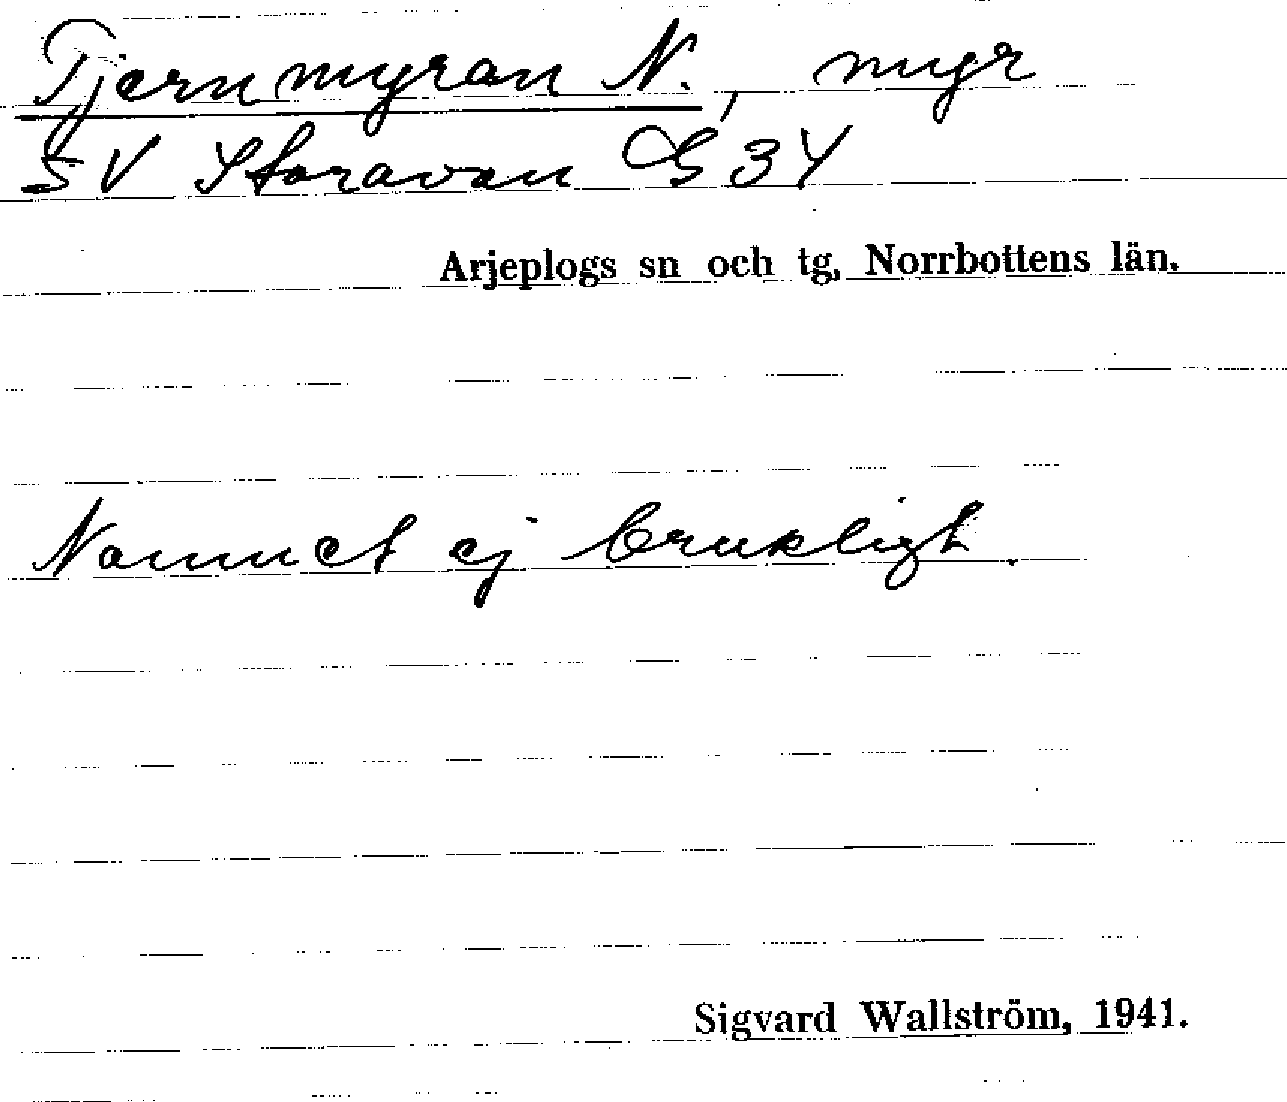 Tjernmyran N., myr
SV Storavan G 34
Arjeplogs sn och tg, Norrbottens län.
Namnet ej brukligt.
Sigvard Wallström, 1941.